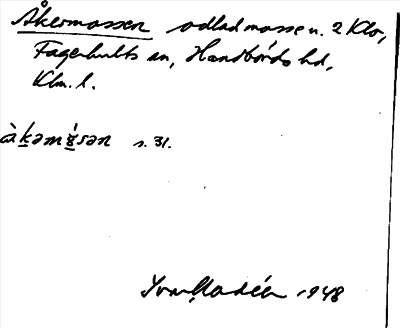 Åkermossen odlad mosse u. 2 Klo,
Fagerhults sn, Handbörds hd,
Klm. l.
àkəmɷ́sən s. 31.
1948